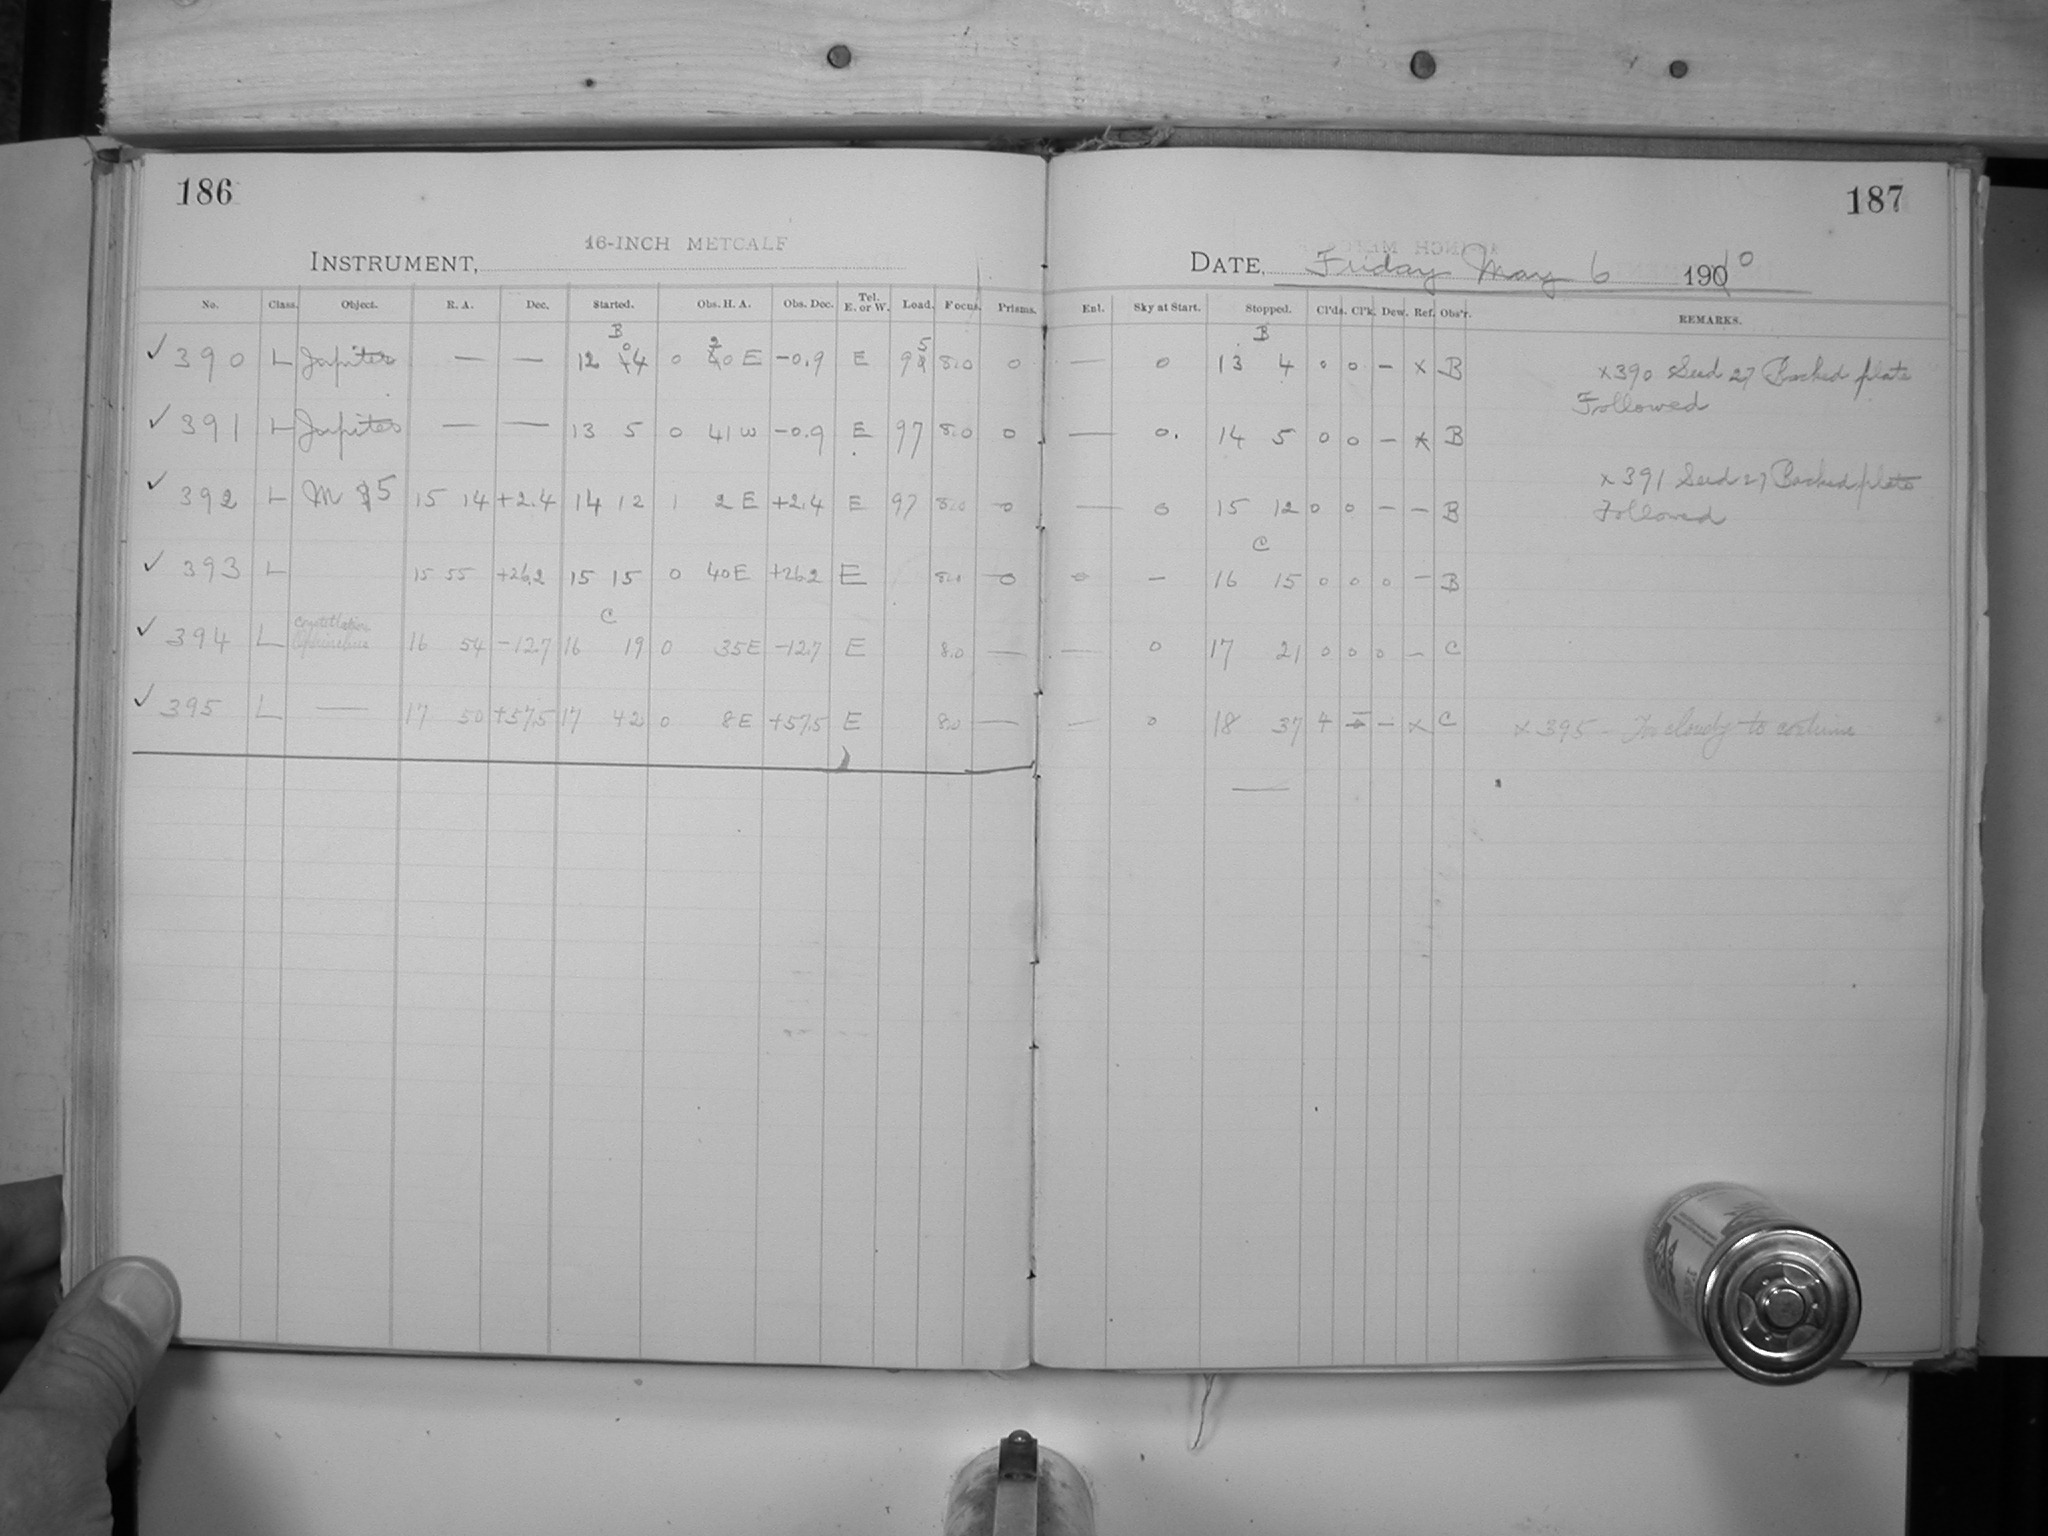 186
187
16-INCH METCALF
INSTRUMENT,
DATE, Friday May 6 1910
No. Class. Object. R. A. Dec. Started. Obs. H. A. Obs. Dec. Tel. E. or W. Load. Focus. Prisms. Enl. Sky at Start. Stopped. Cl'ds. Cl'k. Dew. Ref. Obs'r. REMARKS.
B B
✓ 390 L Jupiter — — 12 04 0 20 E -0.9 E 95 8.0 0 — 0 13 4 0 0 - x B x390 Seed 27 Backed plate
Followed
✓ 391 L Jupiter — — 13 5 0 41 W -0.9 E 97 8.0 0 — 0. 14 5 0 0 - x B
x391 Seed 27 Backed plate
✓ 392 L M 5 15 14 +2.4 14 12 1 2 E +2.4 E 97 8.0 0 — 0 15 12 0 0 - - B Followed
C
✓ 393 L 15 55 +26.2 15 15 0 40 E +26.2 E 8.0 0 0 - 16 15 0 0 0 - B
C
✓ 394 L Constellation Ophiuchus 16 54 -12.7 16 19 0 35 E -12.7 E 8.0 — — 0 17 21 0 0 0 - C
✓ 395 L — 17 50 +57.5 17 42 0 8 E +57.5 E 8.0 — — 0 18 37 4 - - x C x 395 - Too cloudy to continue